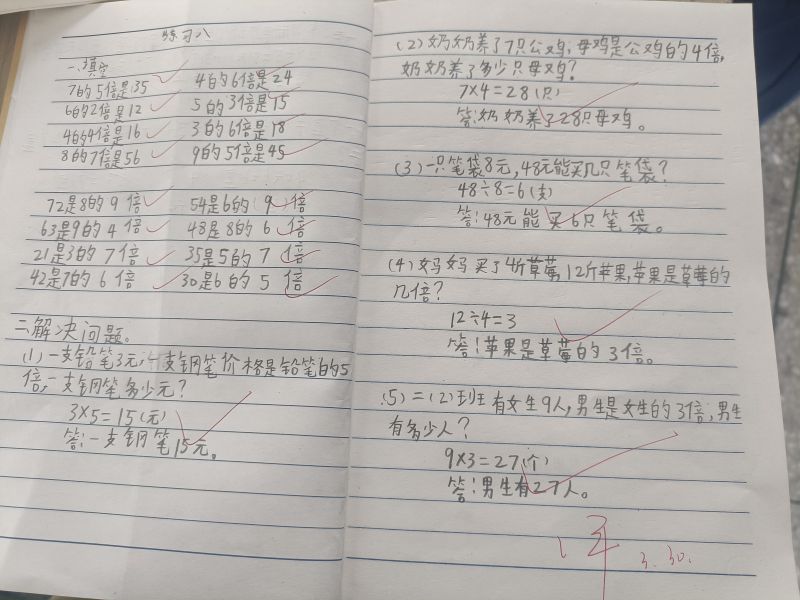 练习八
一、填空
7的5倍是35 4的6倍是24
6的2倍是12 5的3倍是15
4的4倍是16 3的6倍是18
8的7倍是56 9的5倍是45
72是8的9倍 54是6的(9)倍
63是9的4倍 48是8的6倍
21是3的7倍 35是5的7倍
42是7的6倍 30是6的5倍
二、解决问题。
(1)一支铅笔3元,一支钢笔价格是铅笔的5
倍,一支钢笔多少元?
3×5=15(元)
答:一支钢笔15元。
(2)奶奶养了7只公鸡,母鸡是公鸡的4倍,
奶奶养了多少只母鸡?
7×4=28(只)
答:奶奶养了28只母鸡。
(3)一只笔袋8元,48元能买几只笔袋?
48÷8=6(支)
答:48元能买6只笔袋。
(4)妈妈买了4斤草莓,12斤苹果,苹果是草莓的
几倍?
12÷4=3
答:苹果是草莓的3倍。
(5)二(2)班有女生9人,男生是女生的3倍,男生
有多少人?
9×3=27(个)
答:男生有27人。
3.30.